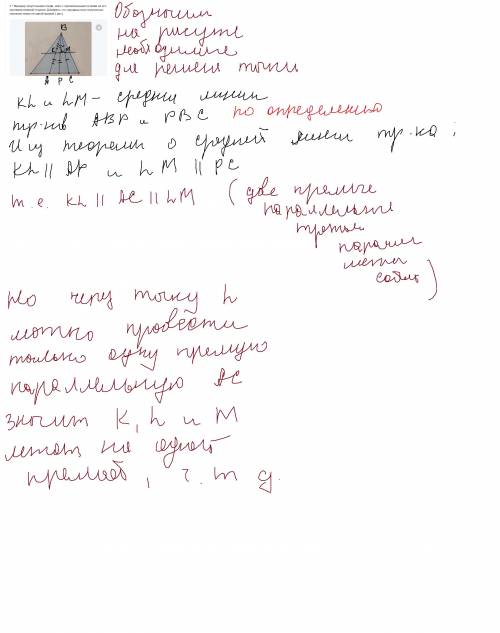 Обозначим
на рисунке
необходимые
для решения точки
B
K L M
A P C
KL и LM – средние линии
тр-ков ABP и PBC по определению
Из теоремы о средней линии тр-ка:
KL || AP и LM || PC
т.е. KL || AC || LM (две прямые
параллельные
третьей
параллельны
между
собой)
Но через точку L
можно провести
только одну прямую
параллельную AC
значит K, L и M
лежат на одной
прямой, ч.т.д.